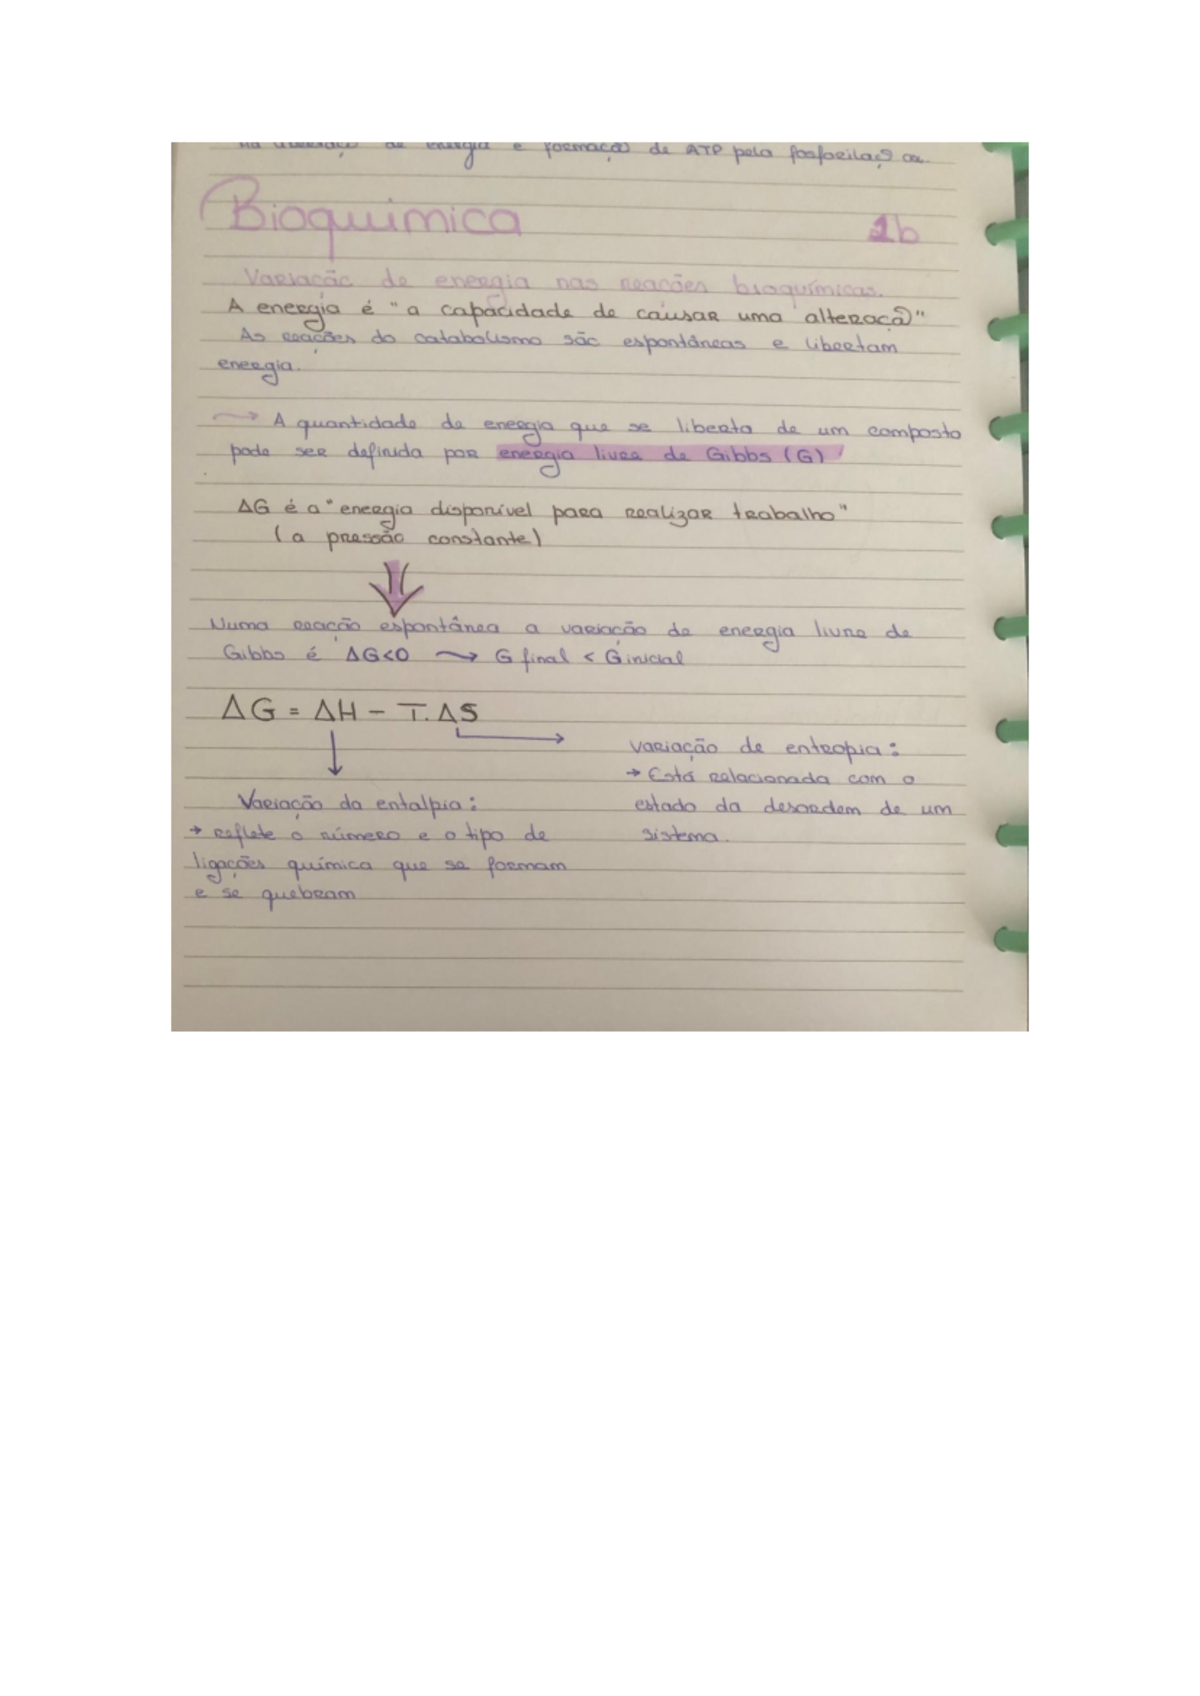 de energia e formação de ATP pela fosforilação ox.
Bioquímica 1b
Variação de energia nas reações bioquímicas.
A energia é "a capacidade de causar uma alteração"
As reações do catabolismo são espontâneas e libertam
energia.
→ A quantidade de energia que se liberta de um composto
pode ser definida por energia livre de Gibbs (G)
ΔG é a "energia disponível para realizar trabalho"
(a pressão constante)
Numa reação espontânea a variação de energia livre de
Gibbs é ΔG<0 → G final < G inicial
ΔG = ΔH - T.ΔS
variação de entropia:
→ Está relacionada com o
estado da desordem de um
sistema.
Variação da entalpia:
→ reflete o número e o tipo de
ligações química que se formam
e se quebram